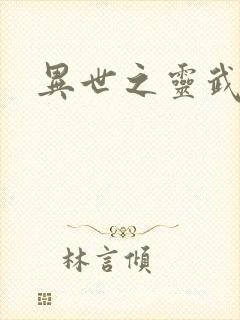 異世之靈武
林言傾